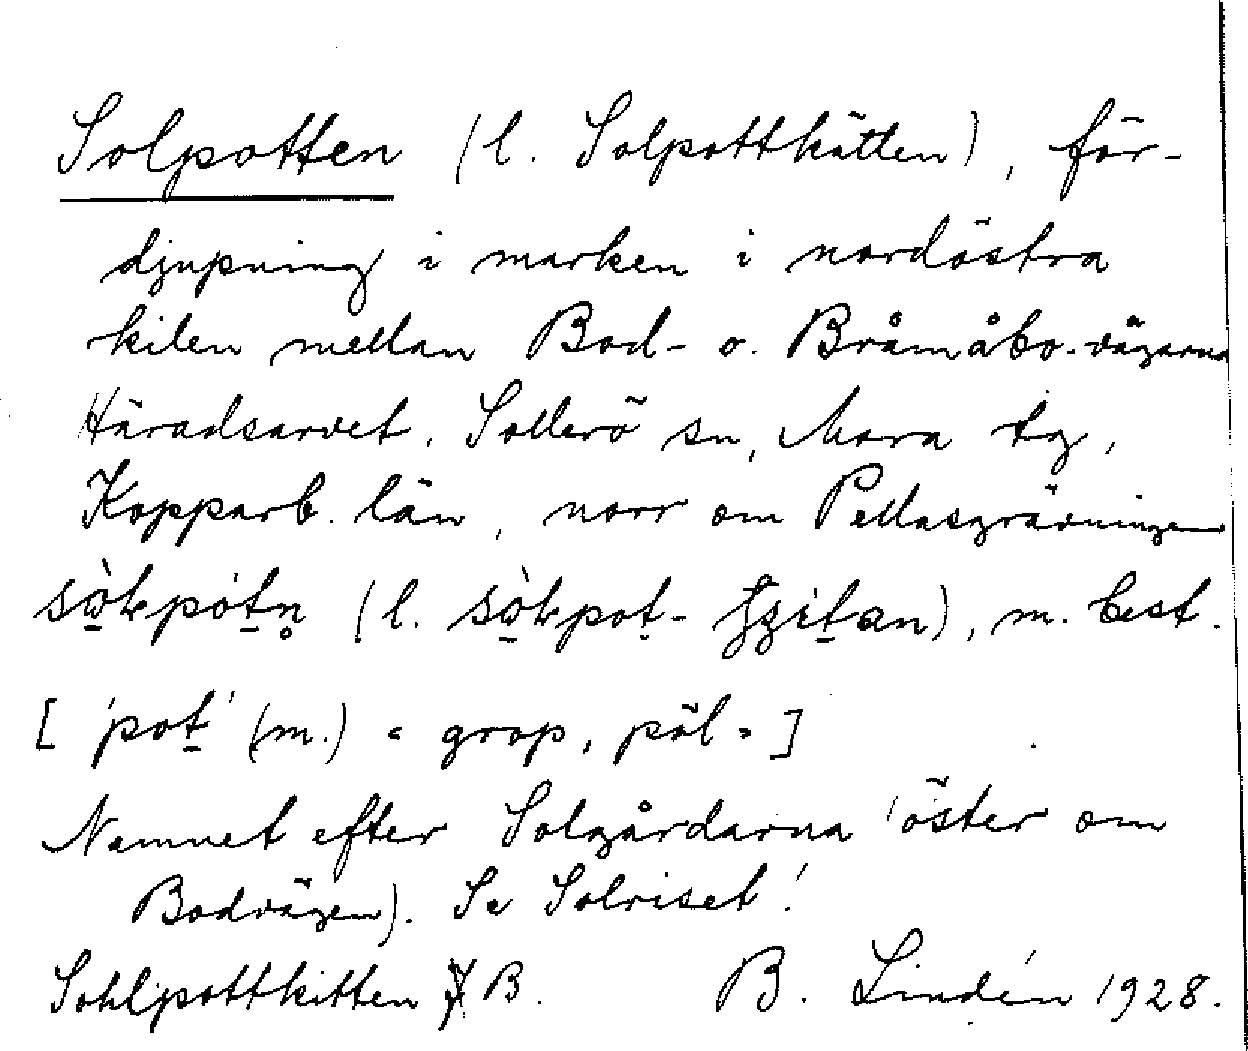 Solpotten (l. Solpottkätten), för-
djupning i marken i nordöstra
kilen mellan Bod- o. Bråmåbo-vägarna
Häradsarvet, Sollerö sn, Mora tg,
Kopparb. län, norr om Pellasgrävningen
(l. m. best.
[ 'pot' (m.) = grop, pöl = ]
Namnet efter Solgårdarna (öster om
Bodvägen). Se Solriset!
Sohlpottkitten B. B. Lindén 1928.